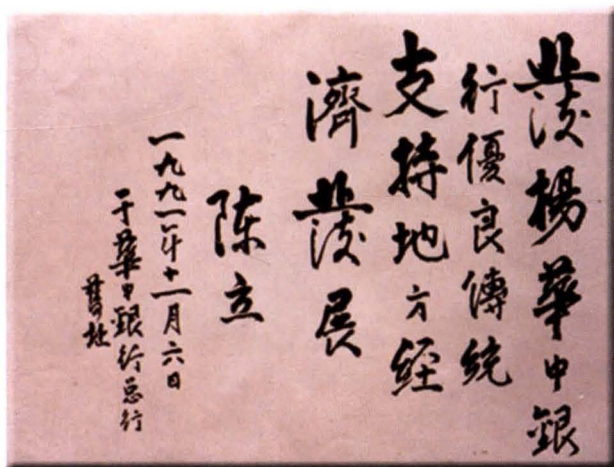 發揚華中銀
行優良傳統
支持地方經
濟發展
陈立
一九九一年十一月六日
于華中銀行总行
舊址